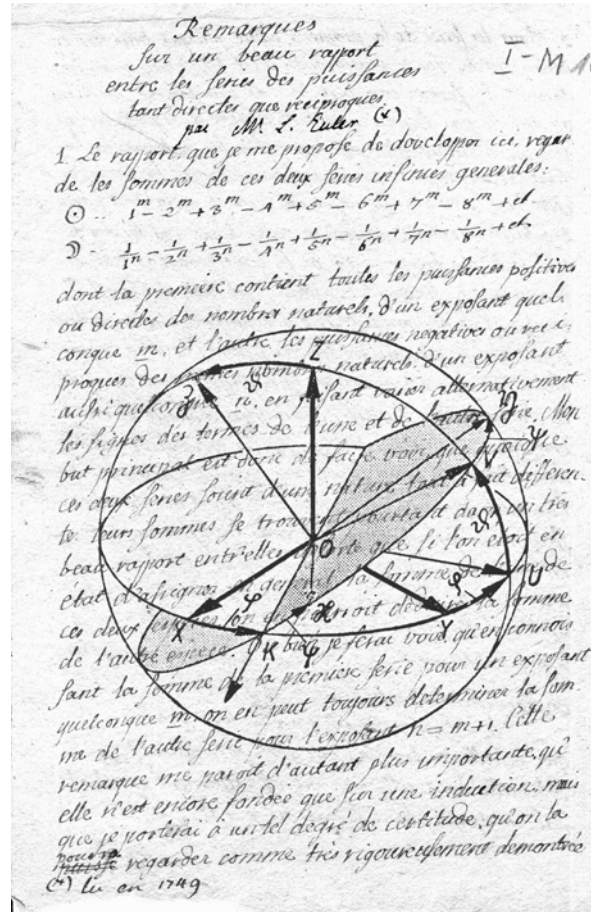 Remarques
sur un beau rapport
entre les series des puissances
tant directes que reciproques
par M. L. Euler (*)
I-M 1
1. Le rapport, que je me propose de developper ici, regar
de les sommes de ces deux series infinies generales:
☉ .. 1^m - 2^m + 3^m - 4^m + 5^m - 6^m + 7^m - 8^m + etc
☽ .. 1/1^n - 1/2^n + 1/3^n - 1/4^n + 1/5^n - 1/6^n + 1/7^n - 1/8^n + etc
dont la premiere contient toutes les puissances positives
ou directes des nombres naturels, d'un exposant quel-
conque m, et l'autre les puissances negatives ou reci-
proques des memes nombres naturels, d'un exposant
aussi quelconque n, en faisant varier alternativement
les signes des termes de l'une et de l'autre serie. Mon
but principal est donc de faire voir, que quoique
ces deux series soient d'une nature tout à fait differen-
te leurs sommes se trouvent pourtant dans un très
beau rapport entr'elles, de sorte que si l'on etoit en
état d'assigner en general la somme de l'une de
ces deux especes, on en pourroit deduire la somme
de l'autre espece. Or je ferai voir, qu'en connois-
sant la somme de la premiere serie pour un exposant
quelconque m, on en peut toujours determiner la som-
me de l'autre serie pour l'exposant n = m+1. Cette
remarque me paroit d'autant plus importante, qu'
elle n'est encore fondée que sur une induction, mais
que je porterai à un tel degré de certitude, qu'on la
pourra
puisse regarder comme très rigoureusement demontrée
(*) lu en 1749
Z
ϑ
O
ψ
ϑ
U
φ
X
K
ψ
Y
φ